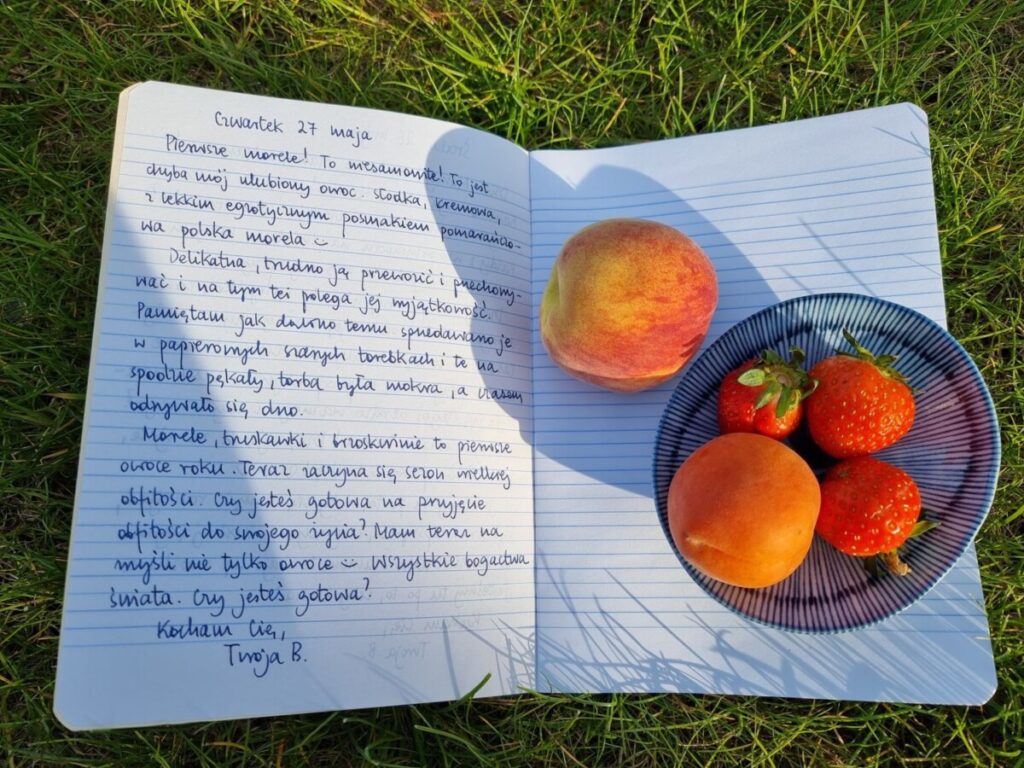 Czwartek 27 maja
Pierwsze morele! To niesamowite! To jest
chyba mój ulubiony owoc. Słodka, kremowa,
z lekkim egzotycznym posmakiem pomarańczo-
wa polska morela
Delikatna, trudno ją przewozić i przechowy-
wać i na tym też polega jej wyjątkowość.
Pamiętam jak dawno temu sprzedawano je
w papierowych szarych torebkach i te na
spodzie pękały, torba była mokra, a czasem
odrywało się dno.
Morele, truskawki i brzoskwinie to pierwsze
owoce roku. Teraz zaczyna się sezon wielkiej
obfitości. Czy jesteś gotowa na przyjęcie
obfitości do swojego życia? Mam teraz na
myśli nie tylko owoce wszystkie bogactwa
świata. Czy jesteś gotowa?
Kocham Cię,
Twoja B.